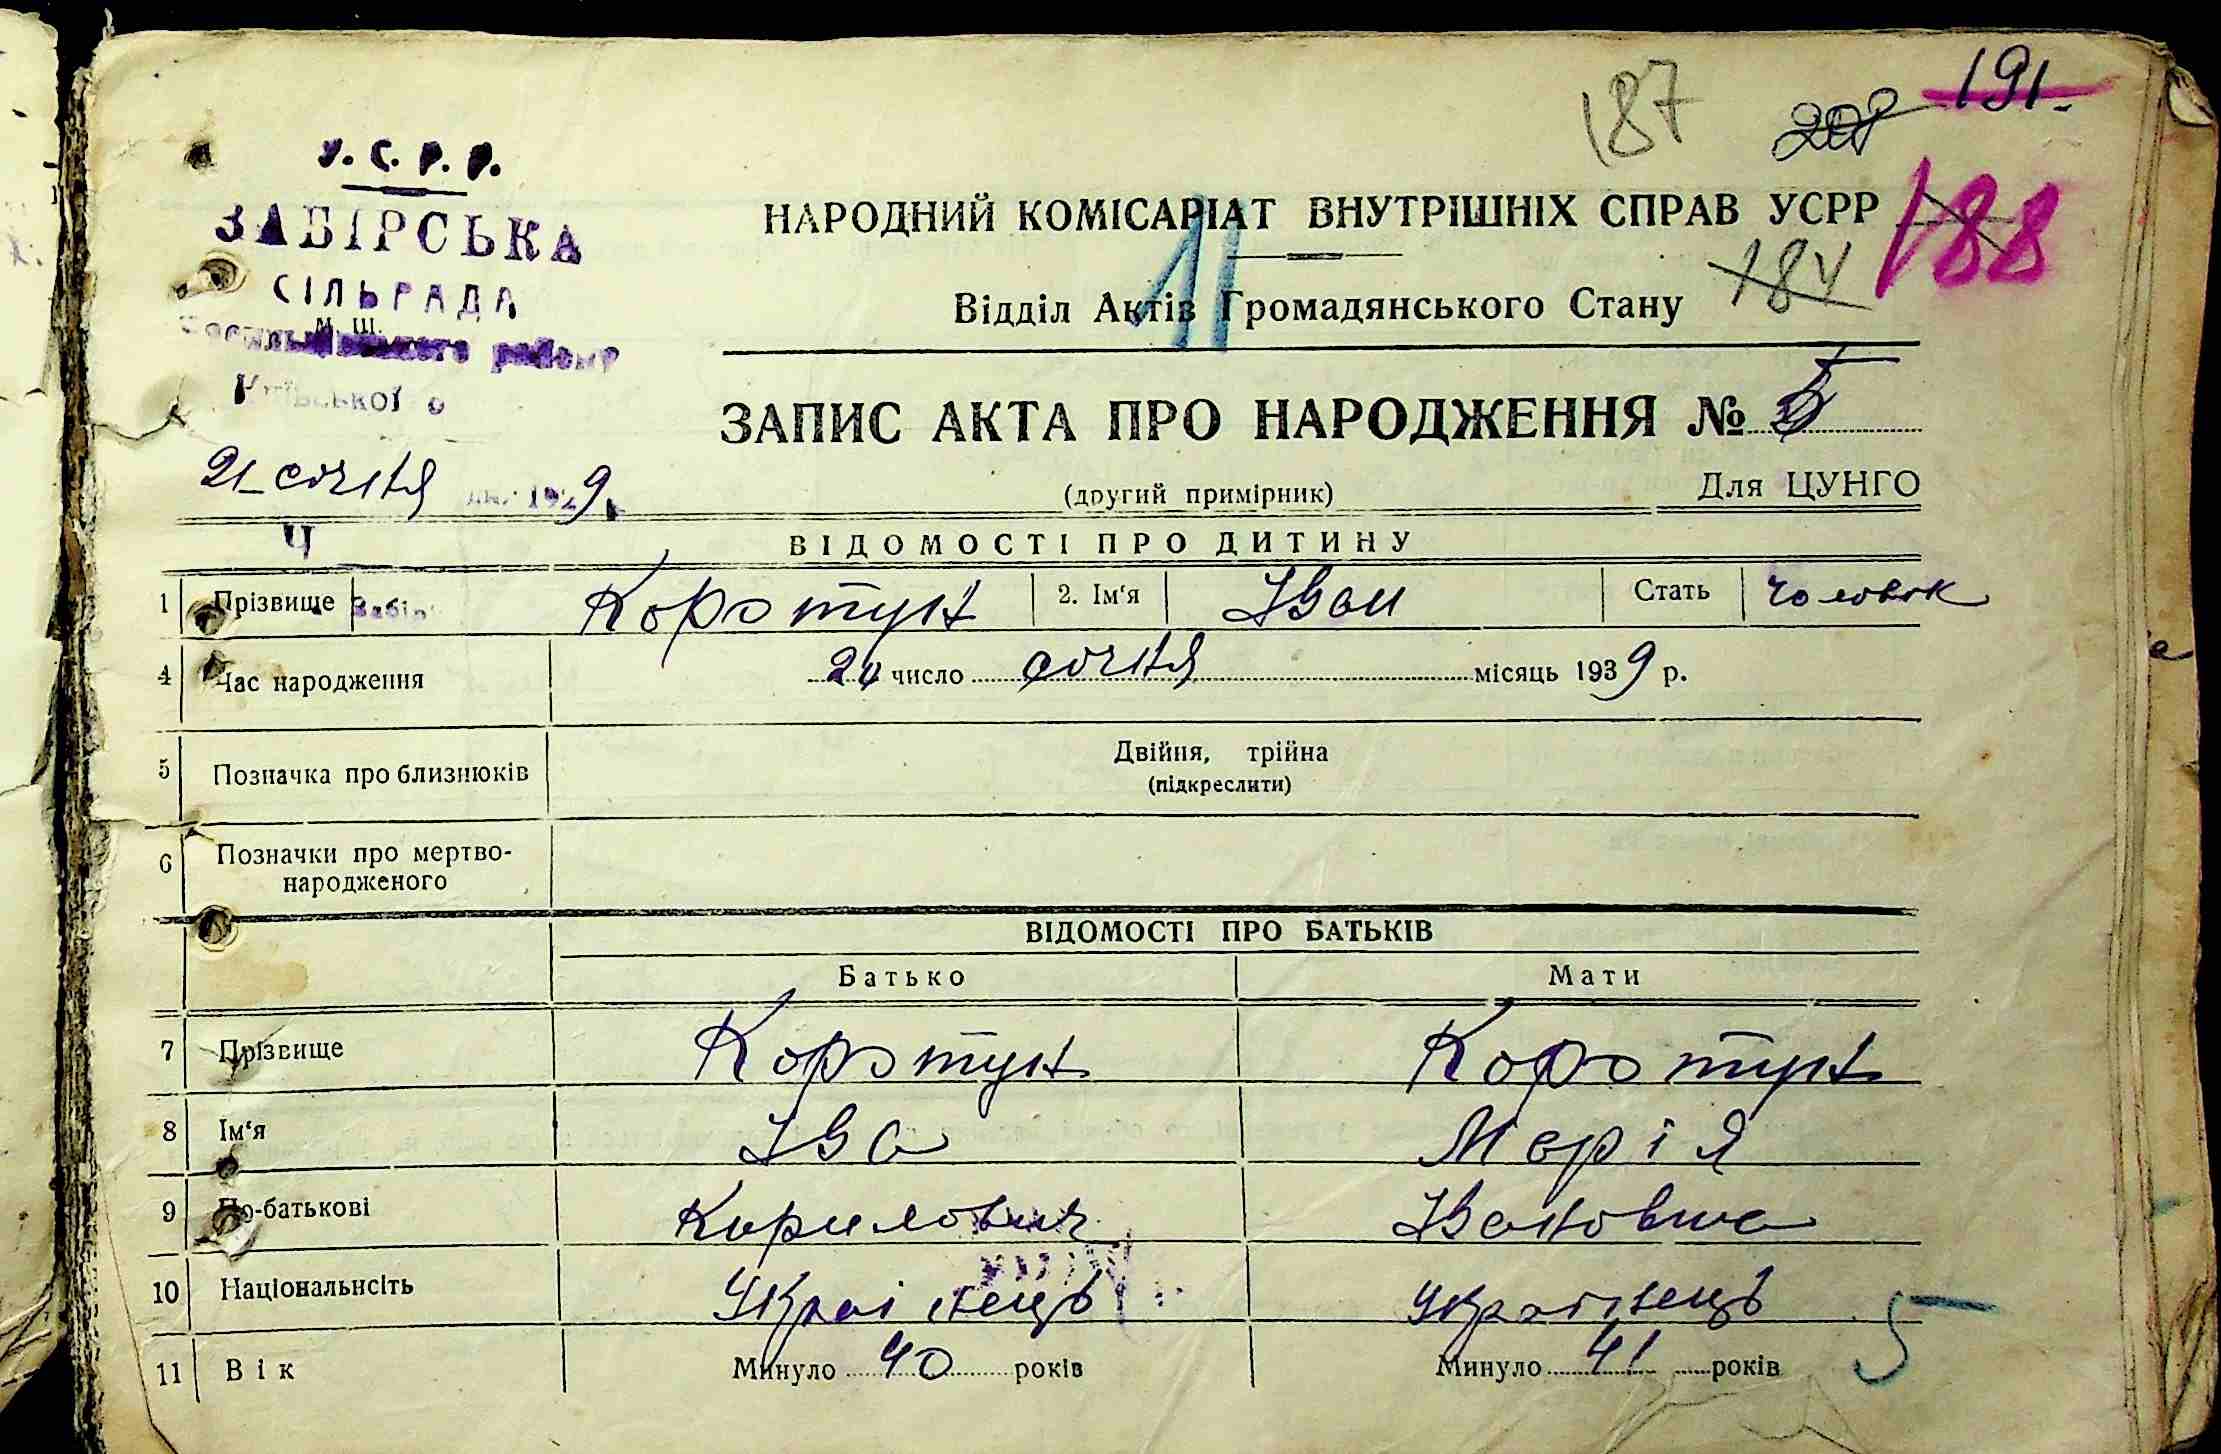 187 208 191.
У. С. Р. Р.
ЗАБІРСЬКА
СІЛЬРАДА
М. Ш.
району
Київської о
НАРОДНИЙ КОМІСАРІАТ ВНУТРІШНІХ СПРАВ УСРР
188
11
184
Відділ Актів Громадянського Стану
ЗАПИС АКТА ПРО НАРОДЖЕННЯ № 5
21 січня 1929
(другий примірник)
Для ЦУНГО
Ч
ВІДОМОСТІ ПРО ДИТИНУ
1 Прізвище Забір Коротун 2. Ім‘я Іван Стать Чоловік
4 Час народження число січня місяць 1939 р.
5 Позначка про близнюків Двійня, трійна
(підкреслити)
6 Позначки про мертво-
народженого
ВІДОМОСТІ ПРО БАТЬКІВ
Батько Мати
7 Прізвище Коротун Коротун
8 Ім‘я Іва Марія
9 По-батькові Корилович Івановна
10 Національнсіть Українець Українець
11 Вік Минуло 40 років Минуло 41 років
5